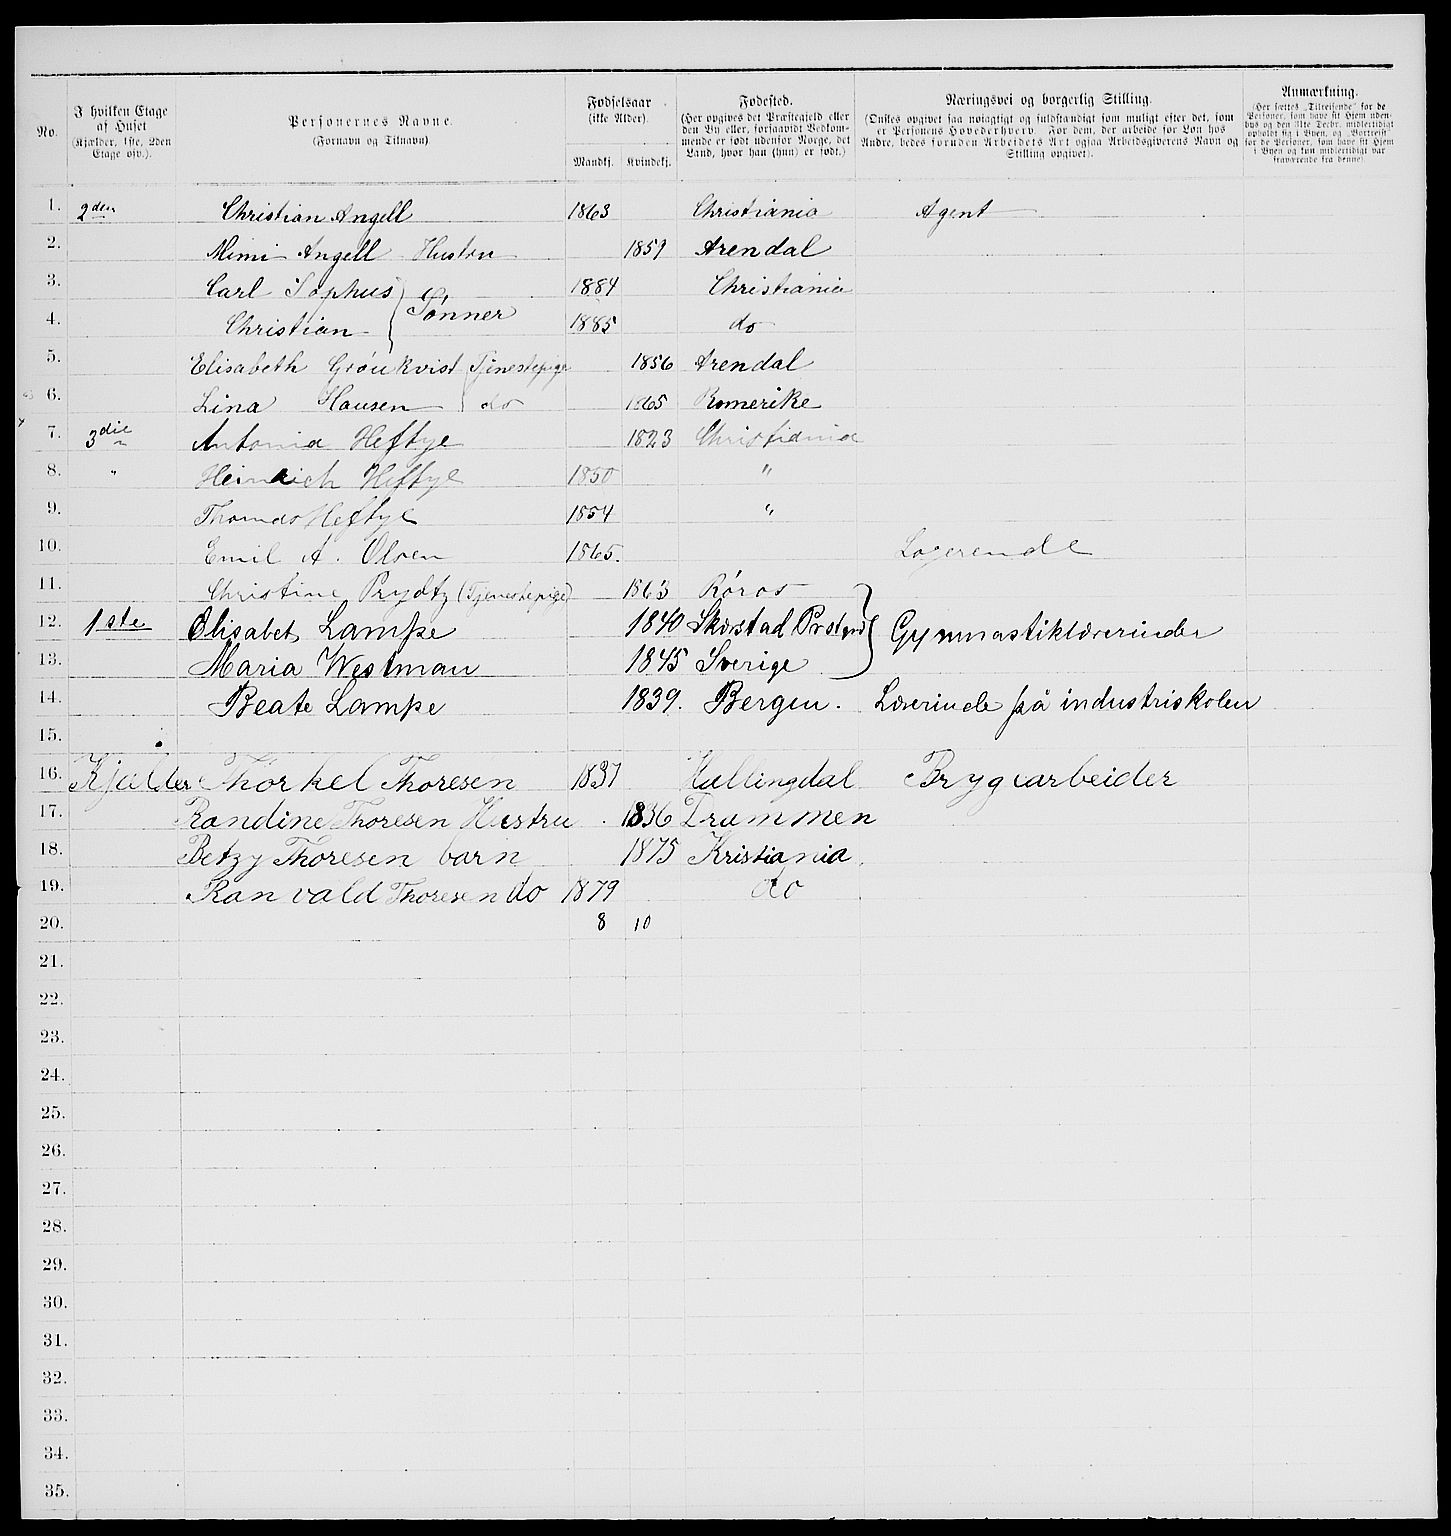 No.
I hvilken Etage af Huset
(Kjælder, 1ste, 2den Etage osv.).
Personernes Navne.
(Fornavn og Tilnavn)
Fødselsaar
(ikke Alder).
Mandkj. Kvindekj.
Fødested.
(Her opgives det Præstegjeld eller
den By eller, forsaavidt Vedkom-
mende er født udenfor Norge, det
Land, hvor han (hun) er født.)
Næringsvei og borgerlig Stilling.
(Ønskes opgivet saa nøiagtigt og fuldstændigt som muligt efter det, som
er Personens Hovederhverv. For dem, der arbeide for Løn hos
Andre, bedes foruden Arbeidets Art ogsaa Arbeidsgiverens Navn og
Stilling opgivet).
Anmærkning.
(Her sættes „Tilreisende" for de
Personer, som have sit Hjem uden-
bys og den 31te Decbr. midlertidigt
opholdt sig i Byen, og „Bortreist"
for de Personer, som have sit Hjem
i Byen og kun midlertidigt var
fraværende fra denne).
1. 2den Christian Angell 1863 Christiania Agent
2. Mimi Angell Hustru 1859 Arendal
3. Carl Sophus 1884 Christiania
Sønner
4. Christian 1885 do
5. Elisabeth Grönkvist Tjenestepige 1856 Arendal
6. Lina Hansen do 1865 Romerike
7. 3die Antonia Heftye 1823 Christiania
8. " Heinrich Heftye 1850 "
9. Thomas Heftye 1854 "
10. Emil A. Olsen 1865. Logerende
11. Christine Prydtz (Tjenestepige) 1863 Røros
12. 1ste Elisabet Lampe 1840 Gymnastiklærerinder
13. Maria Westman 1845 Sverige
14. Beate Lampe 1839. Bergen. Lærerinde på industriskolen
15.
16. Kjælder Thorkel Thoresen 1837 Hallingdal Brygearbeider
17. Randine Thoresen Hustru 1836 Drammen
18. Betzy Thoresen barn 1875 Kristiania.
19. Ranvald Thoresen do 1879 do
20. 8 10
21.
22.
23.
24.
25.
26.
27.
28.
29.
30.
31.
32.
33.
34.
35.